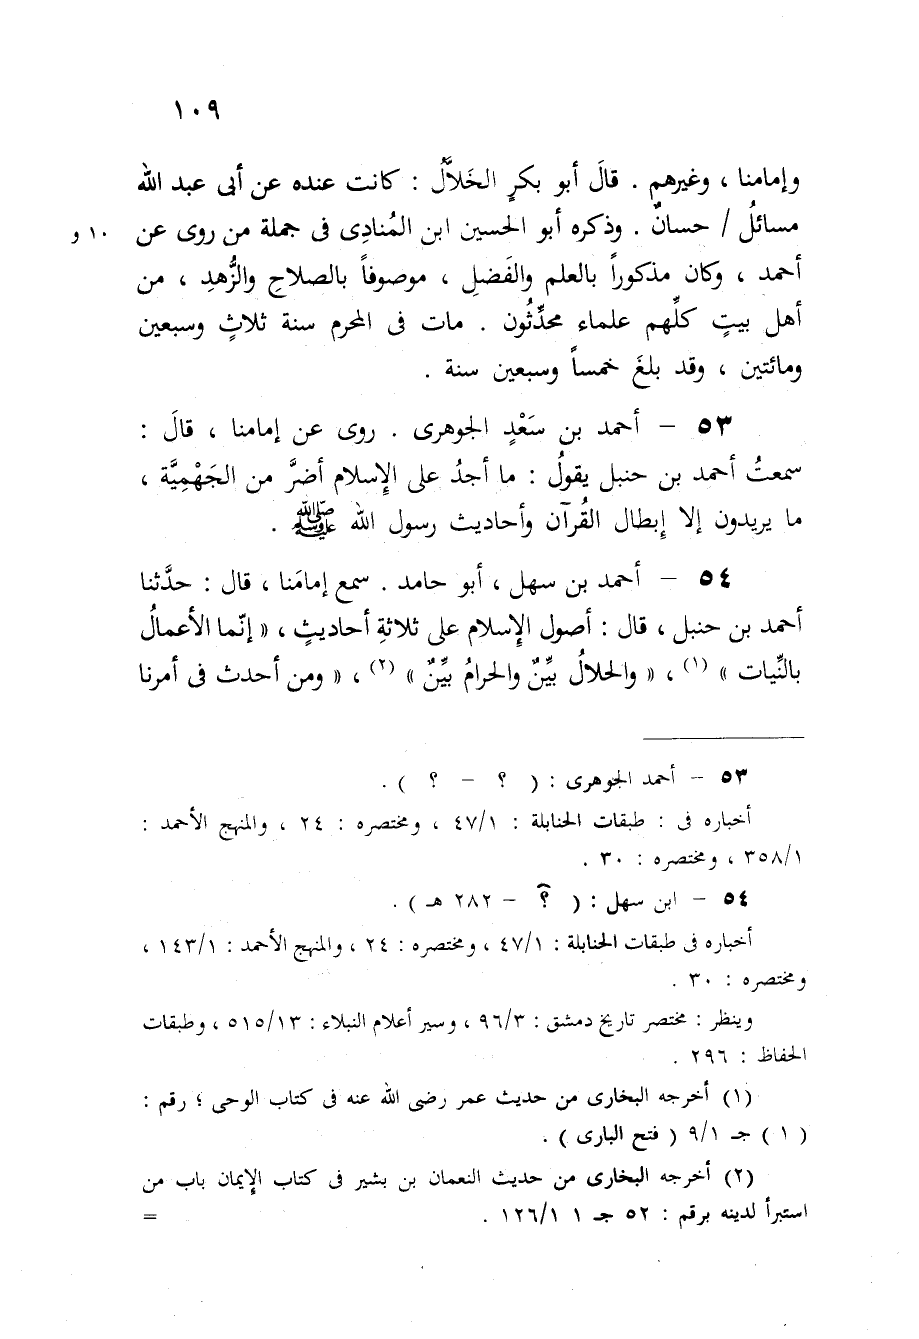 ١٠٩
وإمامنا ، وغيرهم . قالَ أبو بكرٍ الخَلاَّلُ : كانت عنده عن أبى عبد الله
مسائلُ / حسانٌ . وذكره أبو الحسين ابن المُنادِى فى جملة من روى عن ١٠ و
أحمد ، وكان مذكوراً بالعلم والفَضلِ ، موصوفاً بالصلاحِ والزُّهدِ ، من
أهل بيتٍ كلِّهم علماء محدِّثُون . مات فى المحرم سنة ثلاثٍ وسبعين
ومائتين ، وقد بلغَ خمساً وسبعين سنة .
٥٣ – أحمد بن سَعْدٍ الجوهرى . روى عن إمامنا ، قالَ :
سمعتُ أحمد بن حنبل يقولُ : ما أجدُ على الإِسلام أضرَّ من الجَهْمِيَّة ،
ما يريدون إلا إِبطال القُرآن وأحاديث رسول الله ﷺ .
٥٤ – أحمد بن سهل ، أبو حامد . سمع إمامَنا ، قال : حدَّثنا
أحمد بن حنبل ، قال : أصول الإِسلام على ثلاثةِ أحاديثٍ ، « إنّما الأعمالُ
بالنِّيات » (١) ، « والحلالُ بيِّنٌ والحرامُ بيِّنٌ » (٢) ، « ومن أحدث فى أمرنا
٥٣ – أحمد الجوهرى : ( ؟ – ؟ ) .
أخباره فى : طبقات الحنابلة : ٤٧/١ ، ومختصره : ٢٤ ، والمنهج الأحمد :
٣٥٨/١ ، ومختصره : ٣٠ .
٥٤ – ابن سهل : ( ؟ – ٢٨٢ هـ ) .
أخباره فى طبقات الحنابلة : ٤٧/١ ، ومختصره : ٢٤ ، والمنهج الأحمد : ١٤٣/١ ،
ومختصره : ٣٠ .
وينظر : مختصر تاريخ دمشق : ٩٦/٣ ، وسير أعلام النبلاء : ٥١٥/١٣ ، وطبقات
الحفاظ : ٢٩٦ .
(١) أخرجه البخارى من حديث عمر رضى الله عنه فى كتاب الوحى ؛ رقم :
( ١ ) جـ ٩/١ ( فتح البارى ) .
(٢) أخرجه البخارى من حديث النعمان بن بشير فى كتاب الإِيمان باب من
استبرأ لدينه برقم : ٥٢ جـ ١ ١٢٦/١ . =